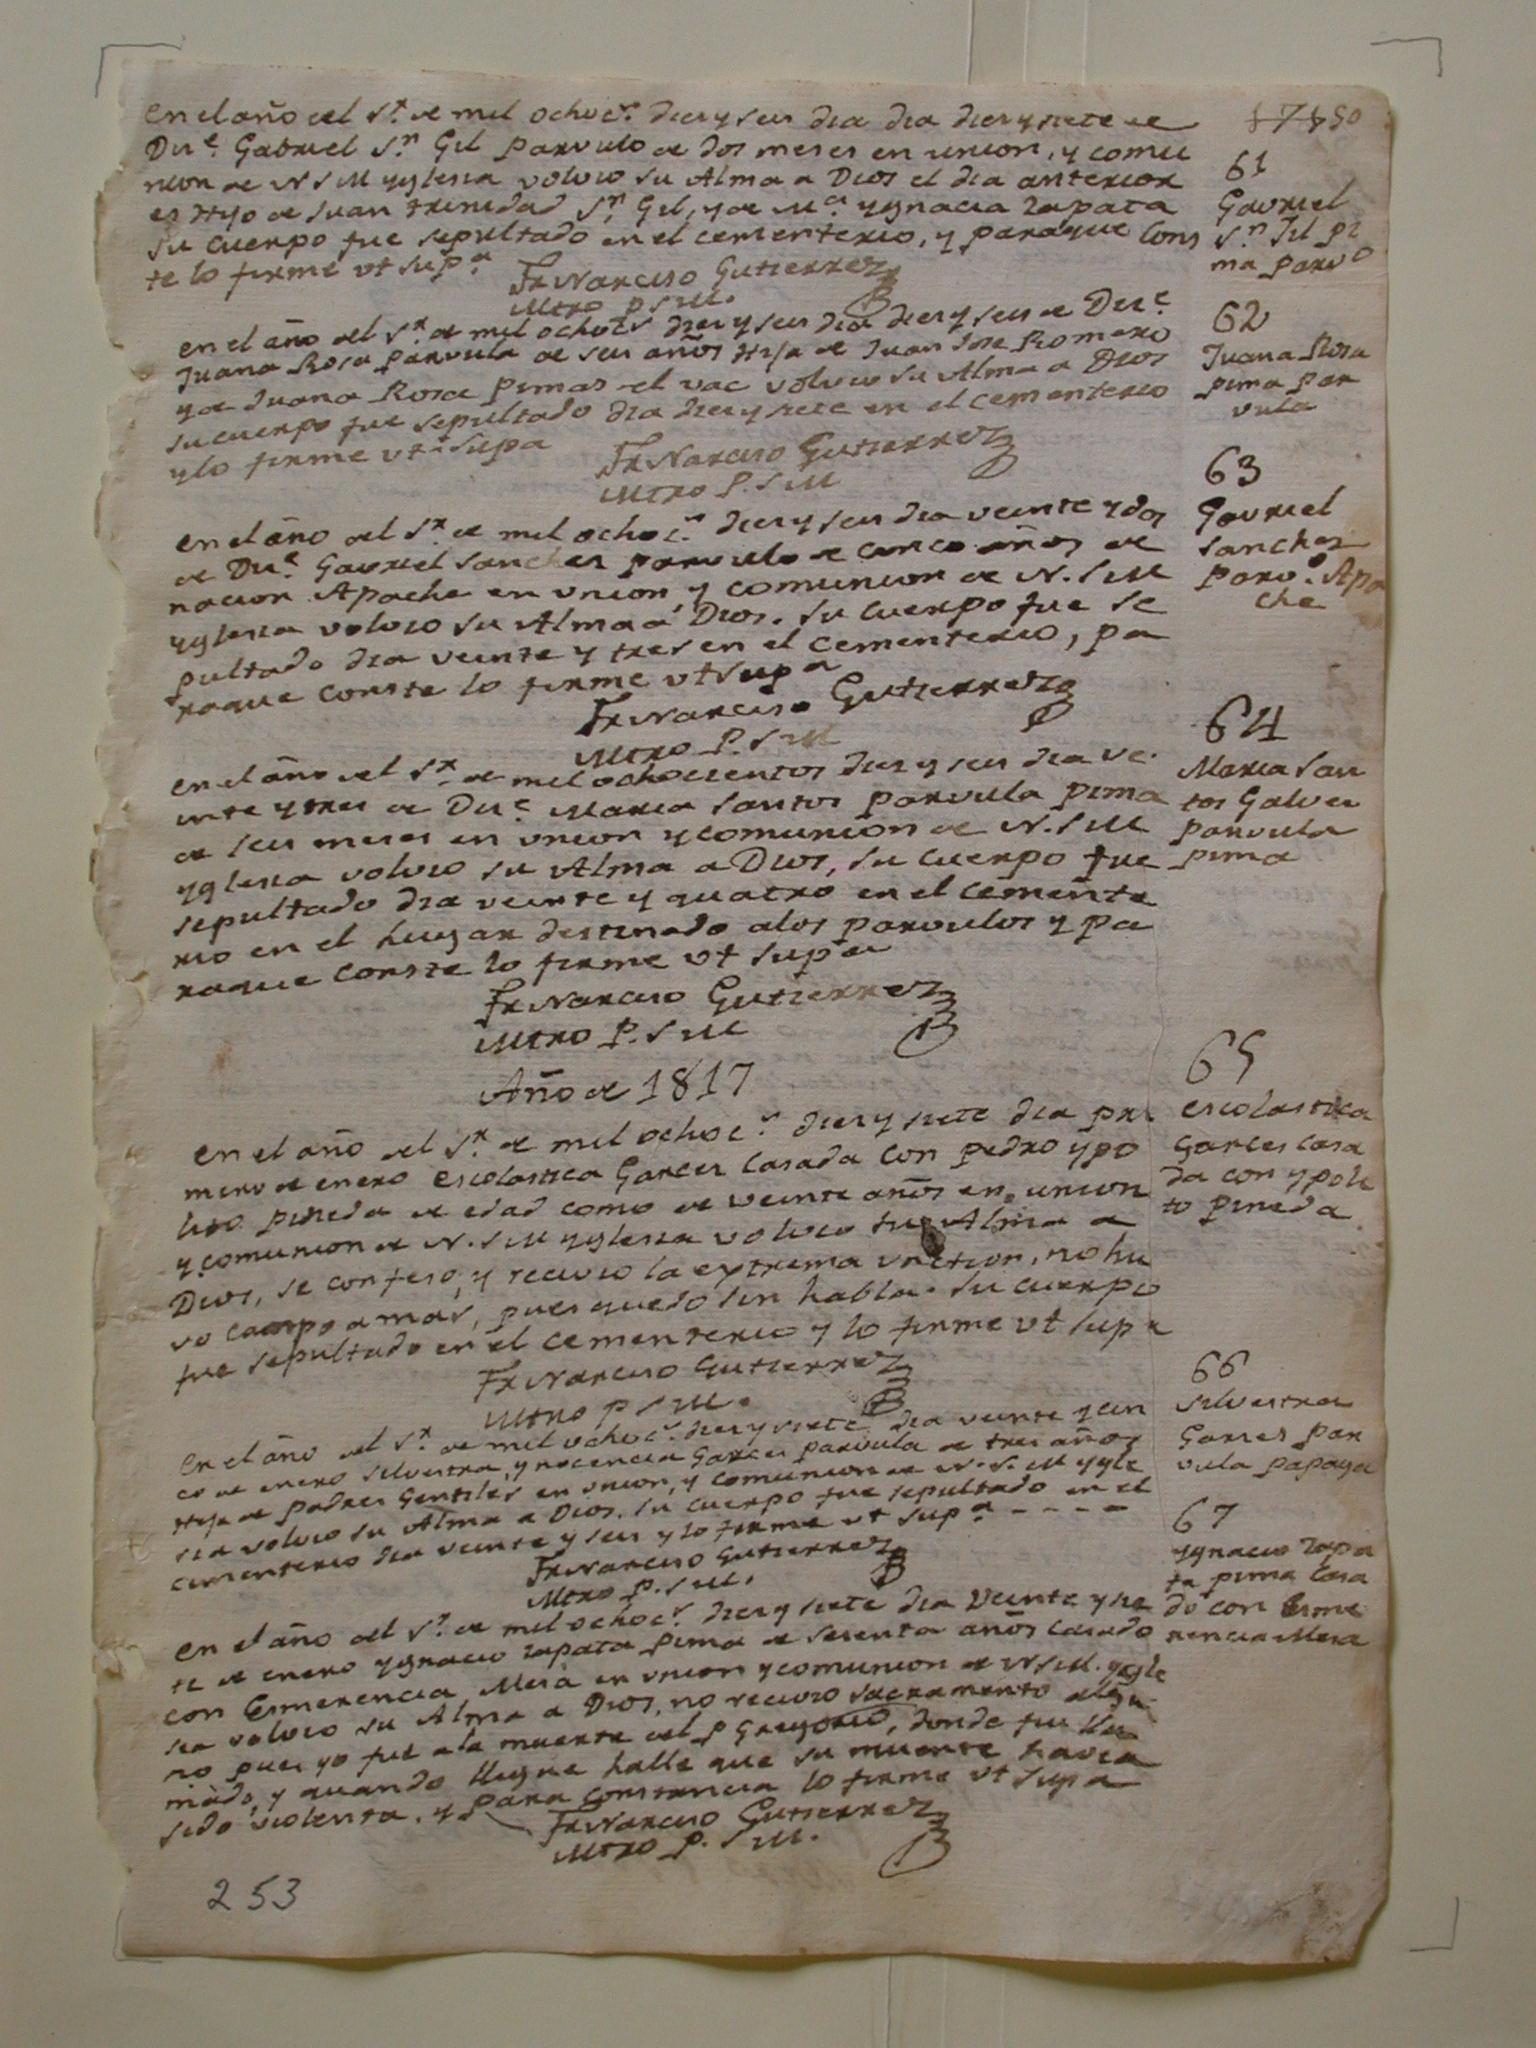 17150
en el año del Sr. de mil ochocs. diez y seis dia dia diez y siete de
Dire. Gabriel Sn. Gil parvulo de dos meses en union, y comu
nion de N S M yglesia volvio su Alma a Dios el dia anterior
es Hijo de Juan trinidad Sn. Gil, y de Ma. ygnacia zapata
su cuerpo fue sepultado en el cementerio, y paraque Cons
te lo firme vt supa.
Fr Narciso Gutierrez
Mtro p S M.
61
Gavriel
Sn. Jil pi
ma parvo
en el año del Sr. de mil ochocs diez y seis dia diez y seis de Dire.
Juana Rosa parvula de seis años Hija de Juan Jose Romero
y de Juana Rosa pimas el vac volvio su Alma a Dios
su cuerpo fue sepultado dia diez y siete en el cementerio
y lo firme vt supa
Fr Narciso Gutierrez
Mtro P. S M
62
Juana Rosa
pima par
vula
en el año del Sr. de mil ochocs. diez y seis dia veinte y dos
de Dire. Gavriel Sanches parvulo de cinco años de
nacion Apache en vnion, y comunion de N. S M
yglesia volvio su Alma a Dios. su cuerpo fue se
pultado dia veinte y tres en el cementerio, pa
raque conste lo firme vt supa
Fr Narciso Gutierrez
Mtro P. S M
63
Gavriel
Sanchez
parvo. Apa
che
en el año del Sr. de mil ochocientos diez y seis dia ve.
inte y tres de Dire Maria Santos parvula pima
de seis meses en vnion y comunion de N. S M
yglesia volvio su Alma a Dios, su cuerpo fue
sepultado dia veinte y quatro en el cemente
rio en el lugar destinado a los parvulos y pa
raque conste lo firme vt supa
Fr Narciso Gutierrez
Mtro P. S M
64
Maria San
tos Galves
parvula
pima
Año de 1817
en el año del Sr. de mil ochocs. diez y siete dia pri
mero de enero escolastica Garces Casada con pedro ypo
lito pineda de edad como de veinte años en union
y comunion de N. S M yglesia volvio su Alma a
Dios, se confeso, y recivio la extrema vnction, no hu
vo campo a mas, pues quedo sin habla. su cuerpo
fue sepultado en el cementerio y lo firme vt supa
Fr Narciso Gutierrez
Mtro p S M.
65
escolastica
Garces casa
da con ypoli
to pineda
en el año del Sr. de mil ochocs. diez y siete dia veinte y cin
co de enero silvestra, ynocencia Garces parvula de tres años
Hija de padres Gentiles en vnion, y comunion de N. S. M ygle
sia volvio su Alma a Dios. su cuerpo fue sepultado en el
cementerio dia veinte y seis y lo firme vt supa - - - -
Fr Narciso Gutierrez
Mtro P. S M.
66
silvestra
Garces par
vula papaga
en el año del Sr. de mil ochocs. diez y siete dia veinte y sie
te de enero ygnacio zapata pima de sesenta años casado
con Esmerencia Mesa en vnion y comunion de N S M. ygle
sia volvio su Alma a Dios, no recivio sacramento algu
no pues yo fui a la muerte del p Gregorio, donde fui lla
mado, y quando llegue halle que su muerte havia
sido violenta. y para constancia lo firme vt supa
Fr Narciso Gutierrez
Mtro P. S M.
67
ygnacio zapa
ta pima casa
do con Esme
rencia Mesa
253